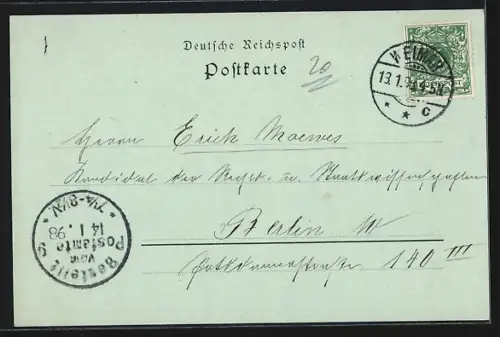 Deutsche Reichspost
Postkarte
20
WEIMAR
13.1.98 4-5N
* * c
Herrn Erich Moewes
Kandidat der Rechts- u. Staatswissenschaften
Berlin W
Potsdamerstraße 140 III
Bestellt
vom
Postamte
9
14.1.98
7¼-8½V.